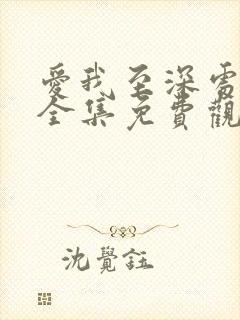 愛我至深電
全集免費觀
沈覺鈺